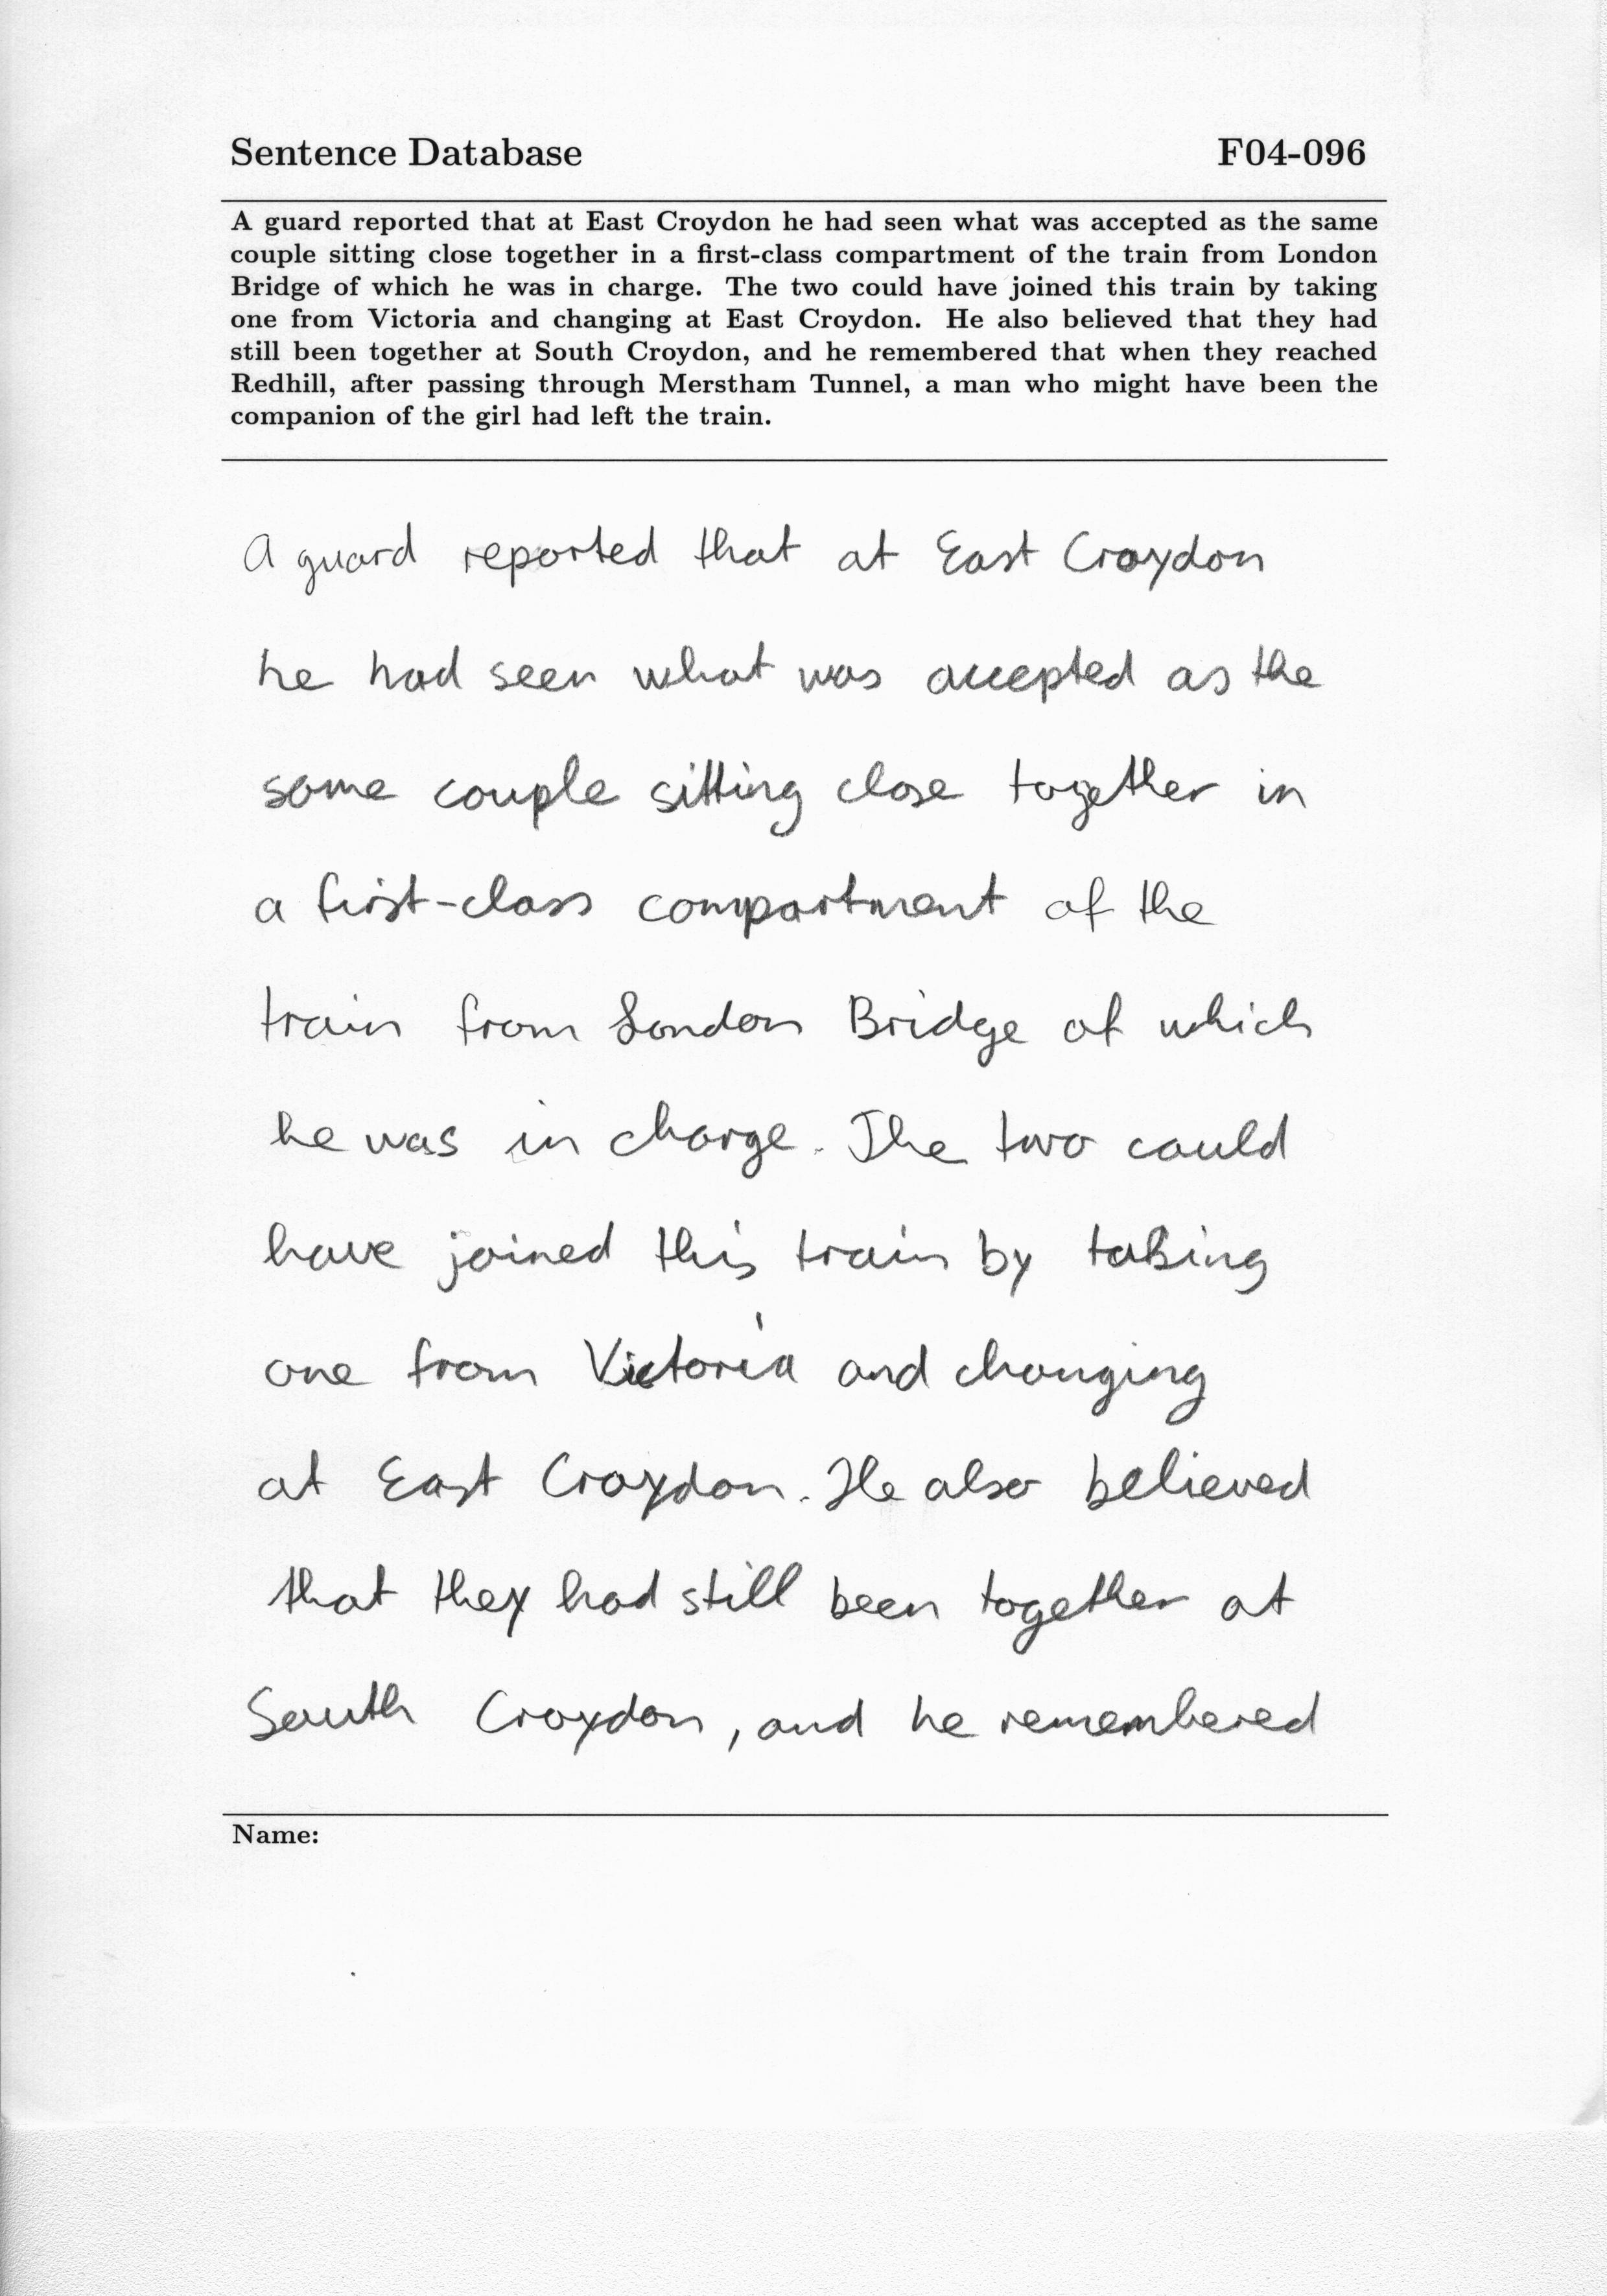 Sentence Database F04-096
A guard reported that at East Croydon he had seen what was accepted as the same
couple sitting close together in a first-class compartment of the train from London
Bridge of which he was in charge. The two could have joined this train by taking
one from Victoria and changing at East Croydon. He also believed that they had
still been together at South Croydon, and he remembered that when they reached
Redhill, after passing through Merstham Tunnel, a man who might have been the
companion of the girl had left the train.
A guard reported that at East Croydon
he had seen what was accepted as the
same couple sitting close together in
a first-class compartment of the
train from London Bridge of which
he was in charge. The two could
have joined this train by taking
one from Victoria and changing
at East Croydon. He also believed
that they had still been together at
South Croydon, and he remembered
Name: